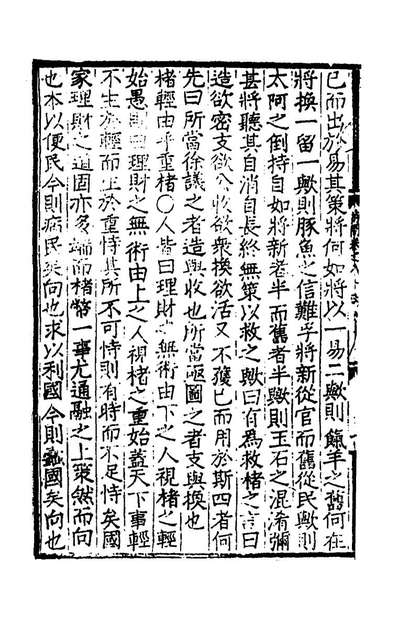 已而出於易其策將何如將以一易二歟則餼羊之舊何在
將換一留一歟則豚魚之信難孚將新從官而舊從民歟則
太阿之倒持自如將新者半而舊者半歟則玉石之混淆彌
甚將聽其自消自長終無策以救之歟曰有為救楮之言曰
造欲密支欲公收欲眾換欲活又不獲已而用於斯四者何
先曰所當徐議之者造與收也所當亟圖之者支與換也
楮輕由乎重楮○人皆曰理財之無術由下之人視楮之輕
始愚則曰理財之無術由上之人視楮之重始蓋天下事輕
不生於輕而生於重恃其所不可恃則有時而不足恃矣國
家理財之道固亦多端而楮幣一事尤通融之上策然而向
也本以便民今則病民矣向也求以利國今則蠹國矣向也